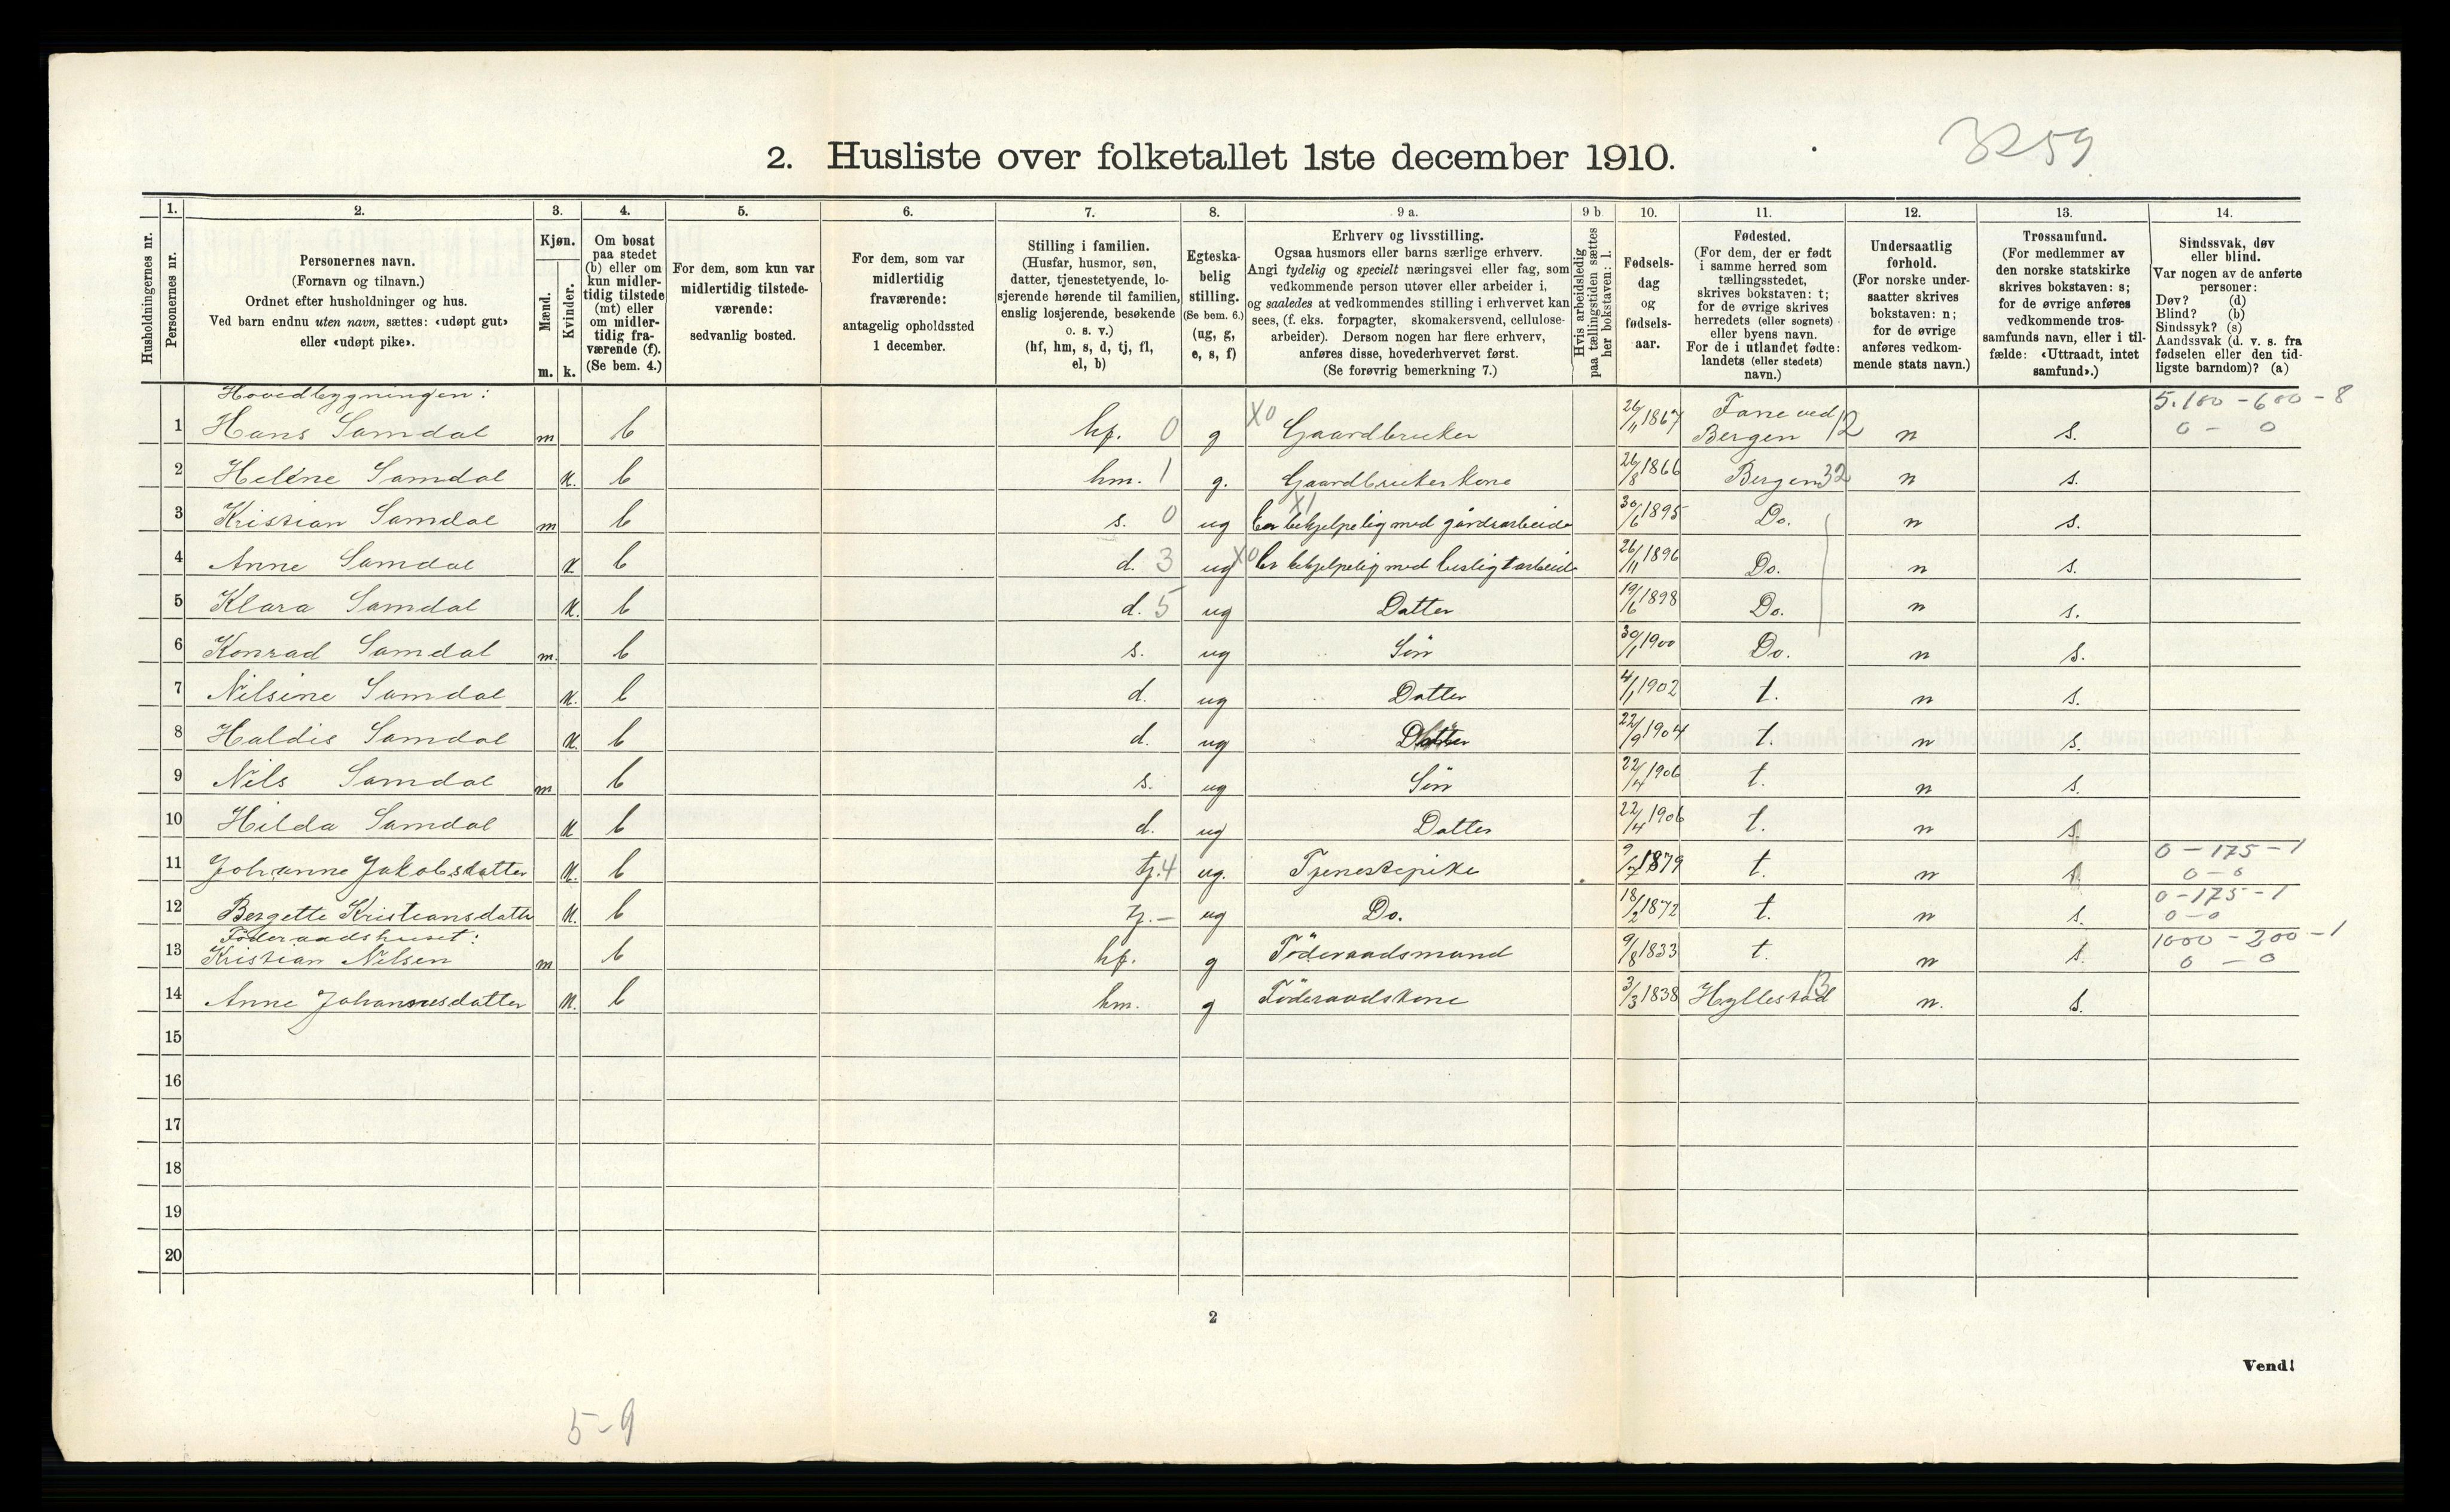 3259
2. Husliste over folketallet 1ste december 1910.
Husholdningernes nr.
1.
Personernes nr.
2.
Personernes navn.
(Fornavn og tilnavn.)
Ordnet efter husholdninger og hus.
Ved barn endnu uten navn, sættes: «udøpt gut»
eller «udøpt pike».
3.
Kjøn.
Mænd.
Kvinder.
m. k.
4.
Om bosat
paa stedet
(b) eller om
kun midler-
tidig tilstede
(mt) eller
om midler-
tidig fra-
værende (f).
(Se bem. 4.)
5.
For dem, som kun var
midlertidig tilstede-
værende:
sedvanlig bosted.
6.
For dem, som var
midlertidig
fraværende:
antagelig opholdssted
1 december.
7.
Stilling i familien.
(Husfar, husmor, søn,
datter, tjenestetyende, lo-
sjerende hørende til familien,
enslig losjerende, besøkende
o. s. v.)
(hf, hm, s, d, tj, fl,
el, b)
8.
Egteska-
belig
stilling.
(Se bem. 6.)
(ug, g,
e, s, f)
9 a.
Erhverv og livsstilling.
Ogsaa husmors eller barns særlige erhverv.
Angi tydelig og specielt næringsvei eller fag, som
vedkommende person utøver eller arbeider i,
og saaledes at vedkommendes stilling i erhvervet kan
sees, (f. eks. forpagter, skomakersvend, cellulose-
arbeider). Dersom nogen har flere erhverv,
anføres disse, hovederhvervet først.
(Se forøvrig bemerkning 7.)
9 b
Hvis arbeidsledig
paa tællingstiden sættes
her bokstaven: l.
10.
Fødsels-
dag
og
fødsels-
aar.
11.
Fødested.
(For dem, der er født
i samme herred som
tællingsstedet,
skrives bokstaven: t;
for de øvrige skrives
herredets (eller sognets)
eller byens navn.
For de i utlandet fødte:
landets (eller stedets)
navn.)
12.
Undersaatlig
forhold.
(For norske under-
saatter skrives
bokstaven: n;
for de øvrige
anføres vedkom-
mende stats navn.)
13.
Trossamfund.
(For medlemmer av
den norske statskirke
skrives bokstaven: s;
for de øvrige anføres
vedkommende tros-
samfunds navn, eller i til-
fælde: «Uttraadt, intet
samfund».)
14.
Sindssvak, døv
eller blind.
Var nogen av de anførte
personer:
Døv? (d)
Blind? (b)
Sindssyk? (s)
Aandssvak (d. v. s. fra
fødselen eller den tid-
ligste barndom)? (a)
Hovedbygningen: 5.100 - 600 - 8
1 Hans Samdal m b hf. 0 g X0 Gaardbruker 26/11 1867 Fane ved Bergen 12 n s. 0 - 0
2 Helene Samdal k. b hm. 1 g. Gaardbrukerkone 26/8 1866 Bergen 32 n s.
3 Kristian Samdal m b s. 0 ug X1 Er behjelpelig med gårdsarbeide 30/6 1895 Do. n s.
4 Anne Samdal k b d. 3 ug X0 Er behjelpelig med huslig tarbeide 26/11 1896 Do. n s.
5 Klara Samdal k. b d. 5 ug Datter 19/6 1898 Do. n s.
6 Konrad Samdal m. b s. ug Søn 30/1 1900 Do. n s.
7 Nilsine Samdal k. b d. ug Datter 4/1 1902 t. n s.
8 Haldis Samdal k. b d. ug Datter 22/9 1904 t. n s.
9 Nils Samdal m b s. ug Søn 22/4 1906 t. n s.
10 Hilda Samdal k b d. ug Datter 22/4 1906 t. n s.
0 - 175 - 1
11 Johanne Jakobsdatter k. b tj. 4 ug. Tjenestepike 9/7 1879 t. n s 0 - 0
0 - 175 - 1
12 Bergette Kristiansdatter k. b tj. - ug Do. 18/2 1872 t. n s. 0 - 0
Föderaadshuset: 1000 - 200 - 1
13 Kristian Nilsen m b hf. g Föderaadsmand 9/8 1833 t. n s. 0 - 0
14 Anne Johannesdatter k. b hm. g Föderaadskone 3/3 1838 Hyllestad 13 n. s.
15
16
17
18
19
20
2
Vend!
5-9